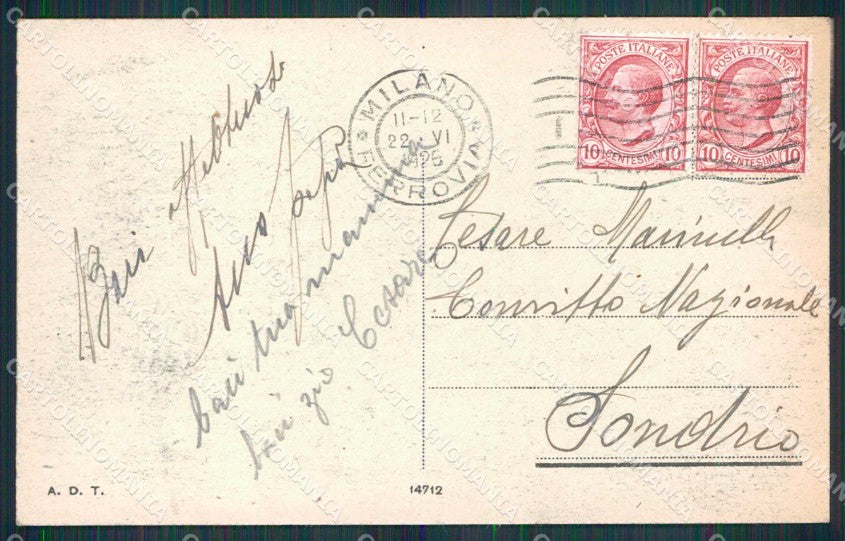 POSTE ITALIANE
10 CENTESIMI 10
POSTE ITALIANE
10 CENTESIMI 10
MILANO
11-12
22·VI
1926
FERROVIA
Baci affettuosi
tuo papà
baci tua mamma
baci zio Cesare
Cesare Marinelli
Convitto Nazionale
Sondrio
A. D. T.
14712
CARTOLINOMANIA